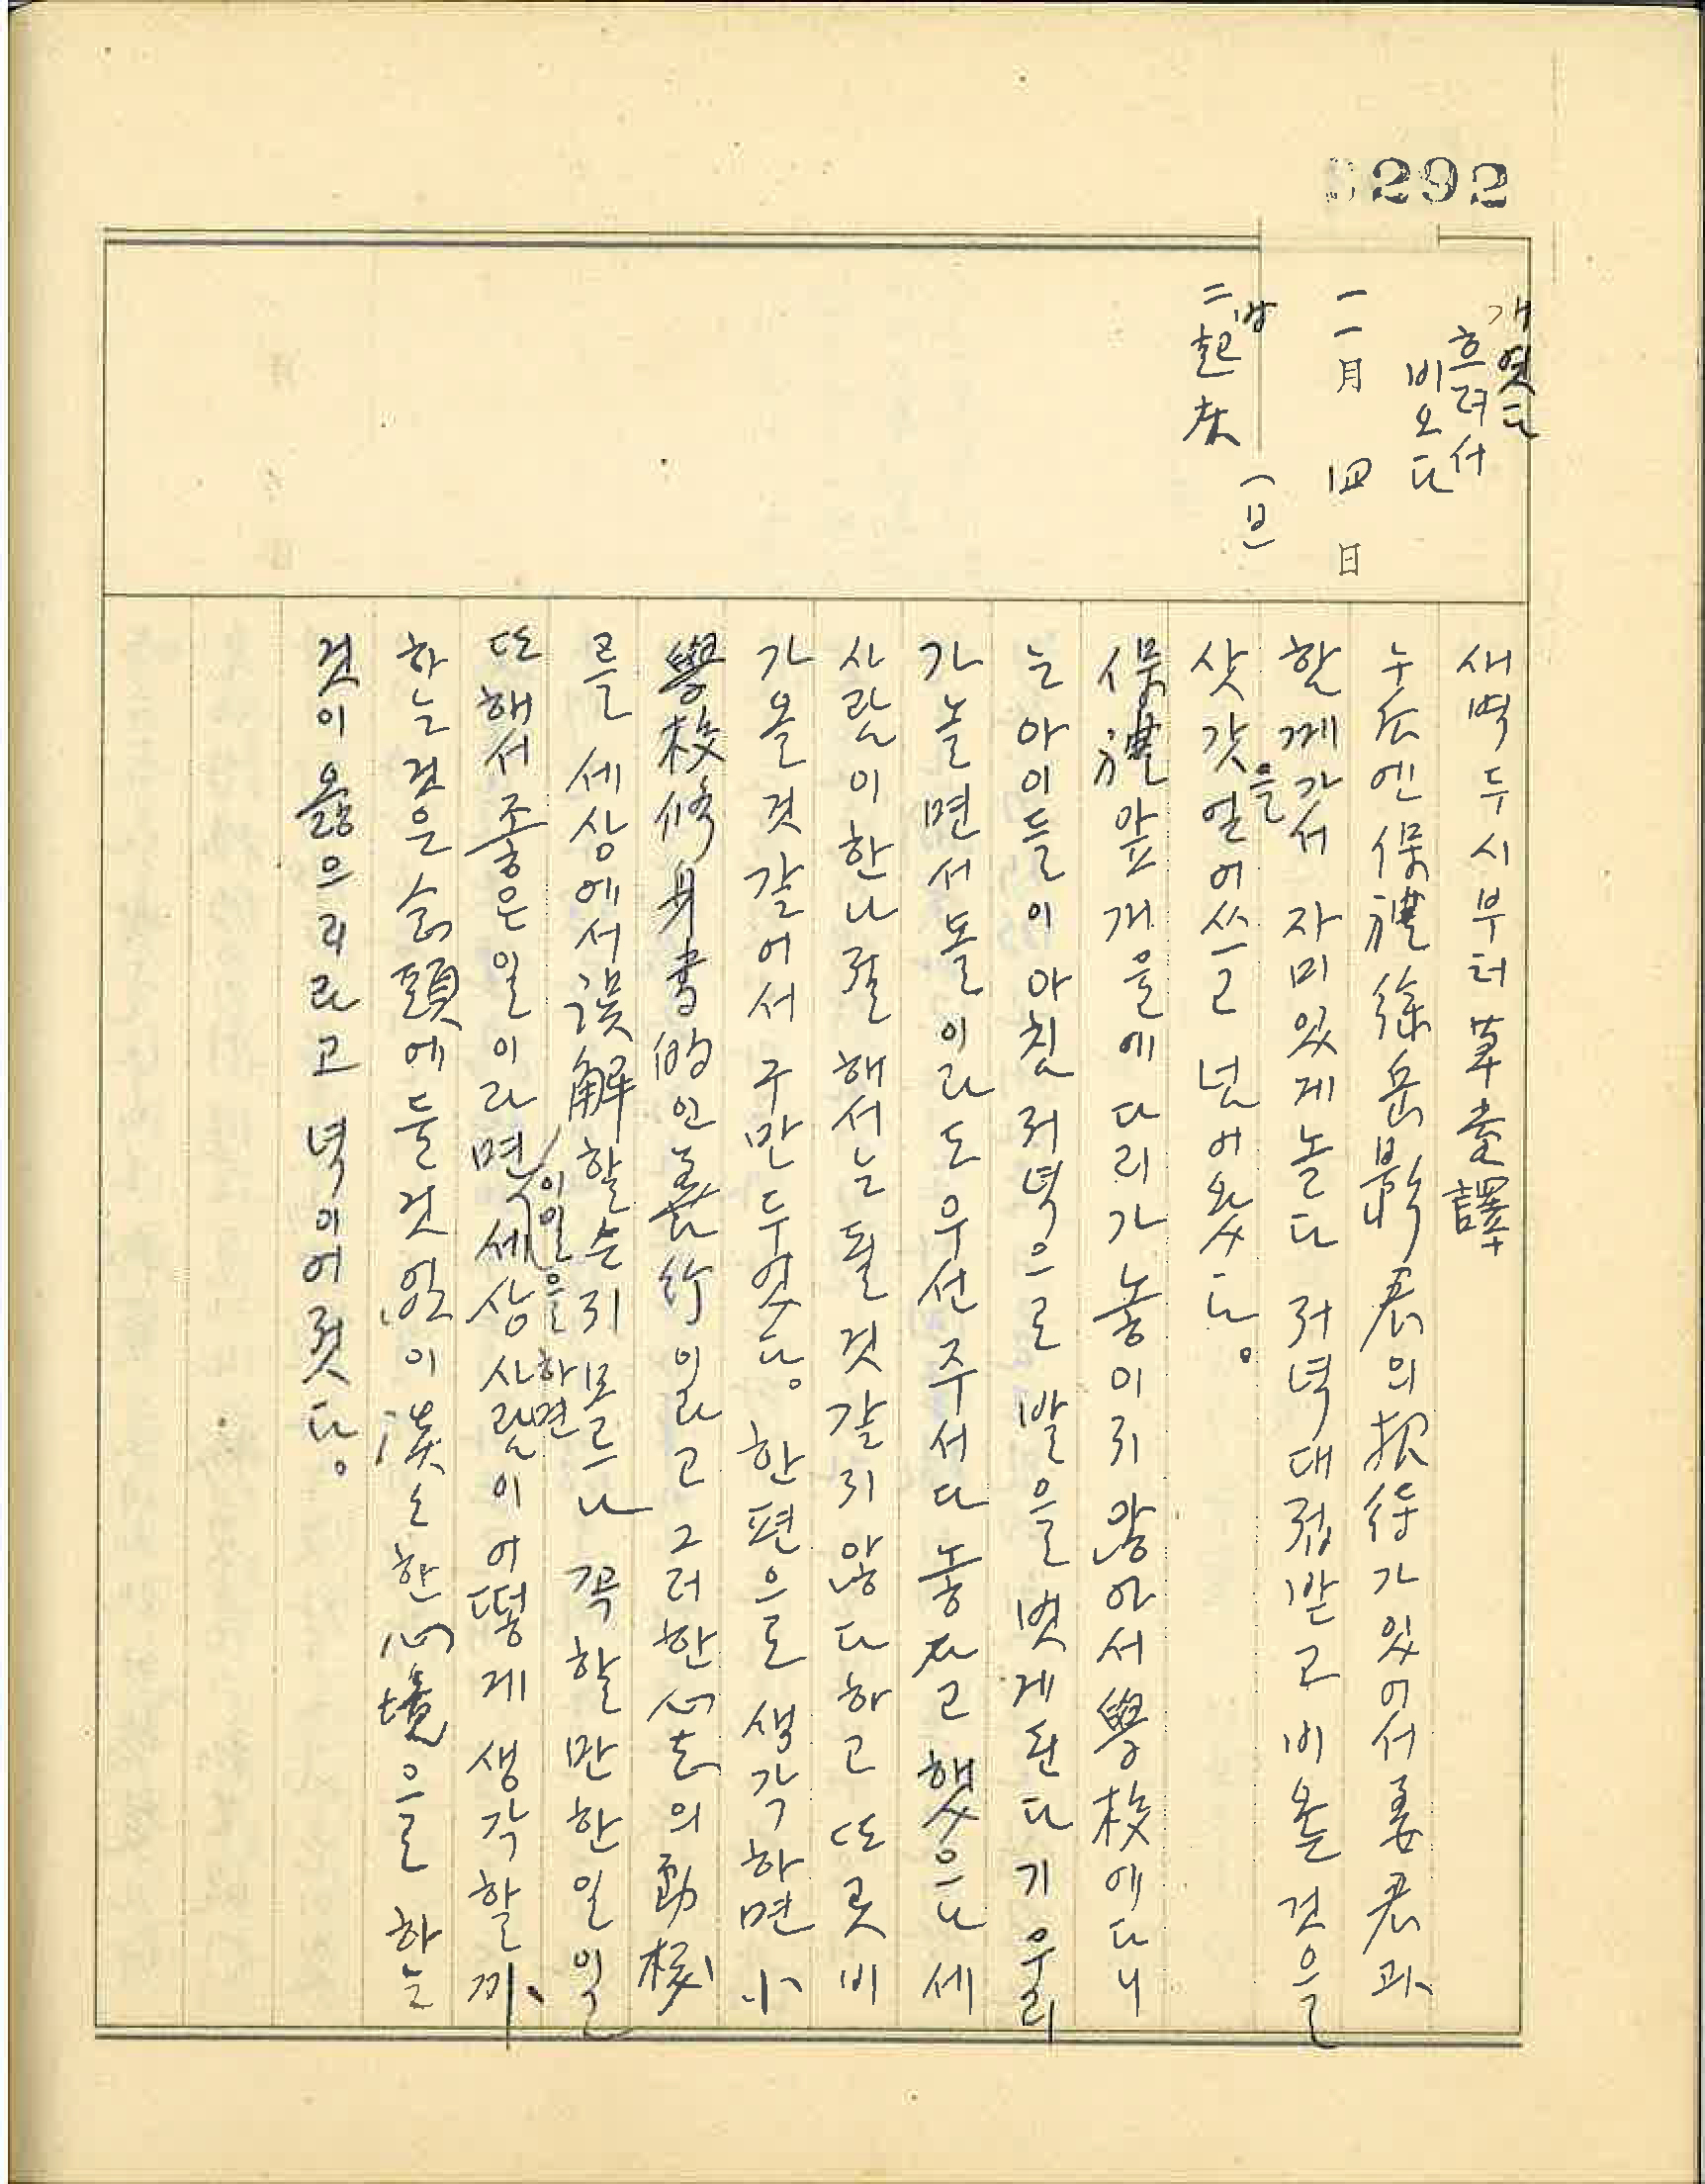 3292
개엿다
흐려서
비오다
一一月 四日
二起床
(日)
새벽두시부터 草臺譯
누구엔 保禮 徐岳 君의 招待가있어서 姜君과
함께가서 자미있게 놀다 저녁대접받고 비올것을
삿갓을 얻어쓰고 넘어왔다。
保禮앞개울에 다리가 놓이지 않아서 學校에다니
는 아이들이 아침저녁으로 발을 벗게된다기 우리
가놀면서 돌이라도 우선 주서다 놓자고 했으나 세
사람이 한나절 해서는 될것갈지 않다하고 또곳비
가올것갈어서 구만두엇다。 한편으로 생각하면 小
學校修身書的인 善行일라고 그러한 心志의 動機
를 세상에서 誤解할른지 모르나 꼭 할만한일 일
또해서 좋은일이라면 이일을하면 세상사람이 어떻게 생각할까、
하는것은 念頭에 둘것없이 淡々한心境으로 하는
것이 옳으리라고 녁이어젓다。